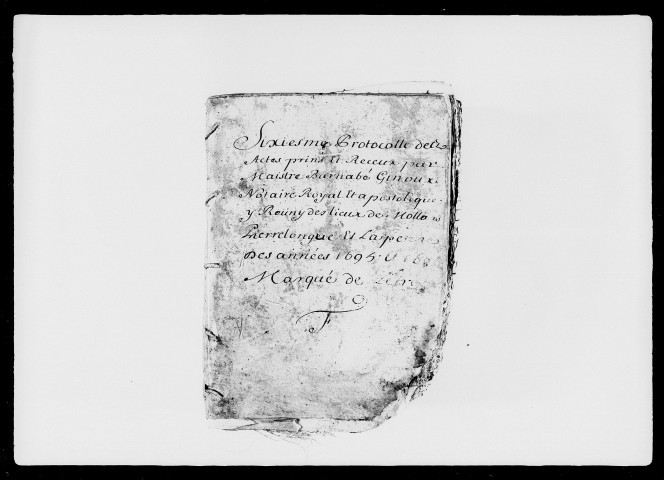 Sixiesme Protocolle des
Actes prins et Receux par
Maistre Barnabé Ginoux
Notaire Royal et apostolique
y Reuny des lieux de Mollans
Pierrelongue Et
Des années 1695
Marqué de
F